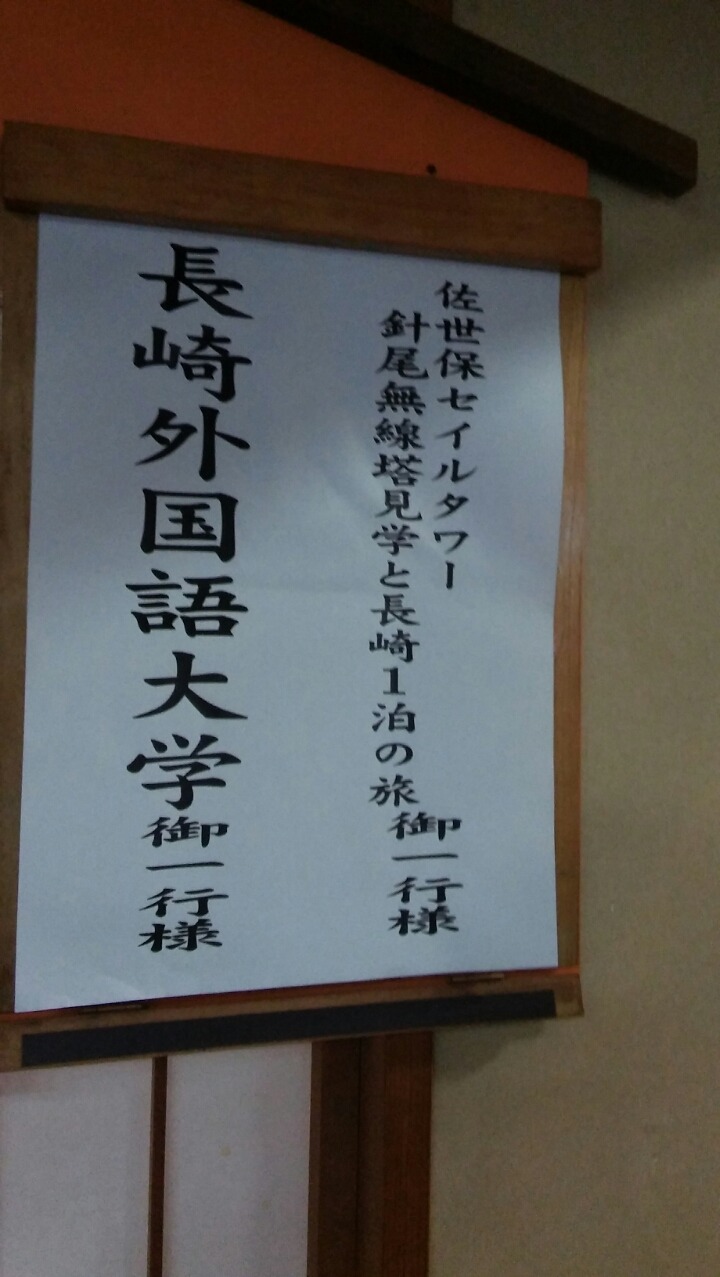 佐世保セイルタワー
針尾無線塔見学と長崎1泊の旅
御一行様
長崎外国語大学御一行様